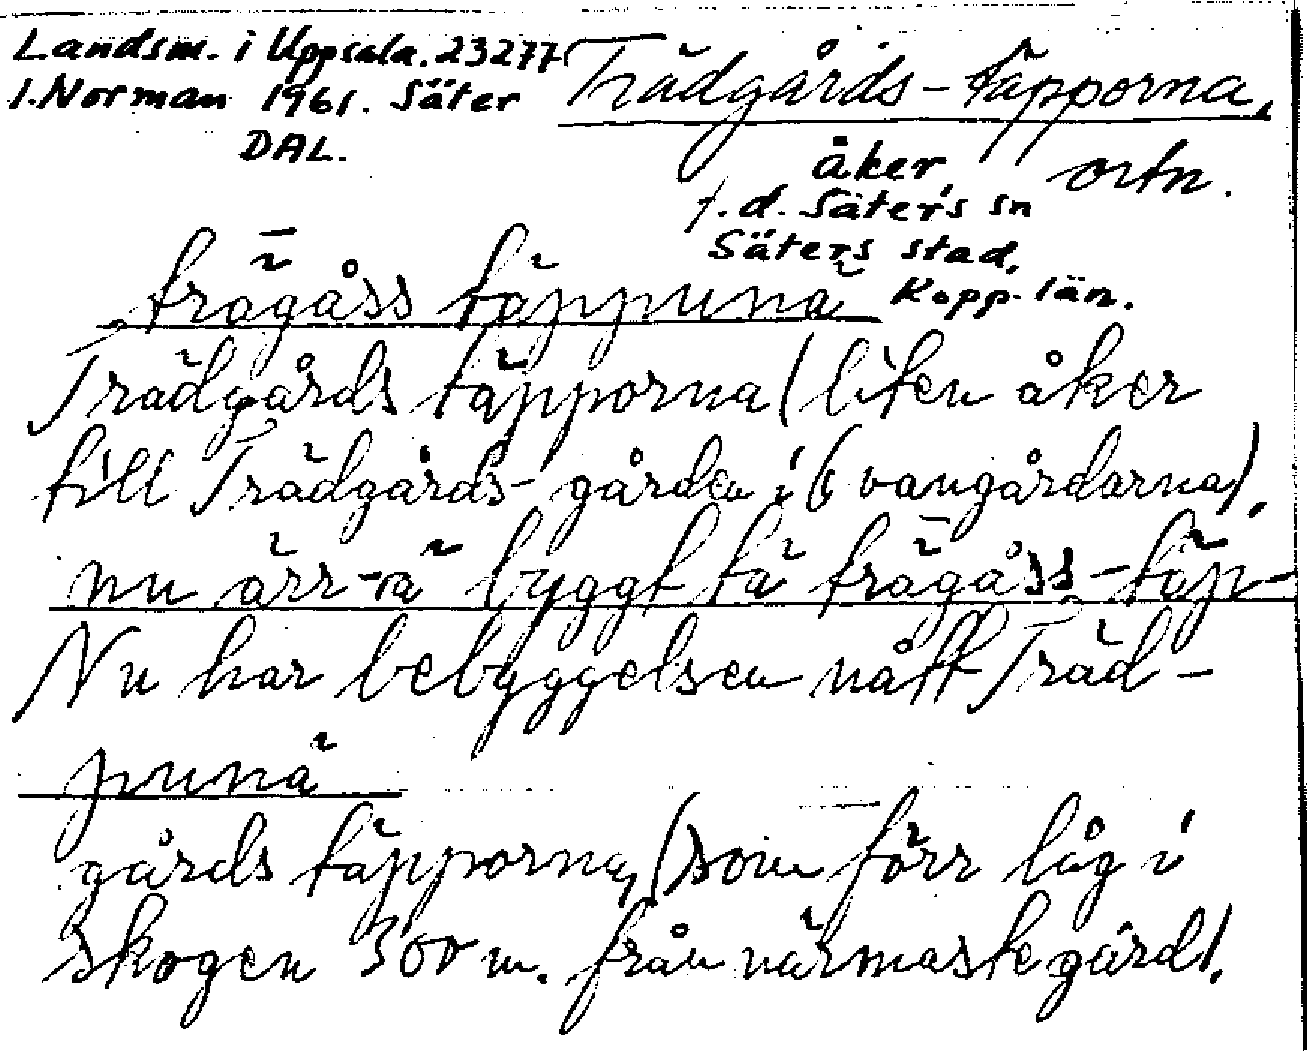 Landsm. i Uppsala. 23277
I. Norman 1961. Säter
DAL.
Trädgårds-täpporna,
åker, ortn.
f.d. Säters sn
Säters stad,
Kopp. län.
trägåss täppunä
Trädgårds täpporna (liten åker
till Trädgårds-gården i (
nu ärr-ä byggt tä trägåss-täp-
Nu har bebyggelsen nått Träd-
punä
gårds täpporna, (som förr låg i
skogen 300 m. från närmaste gård).